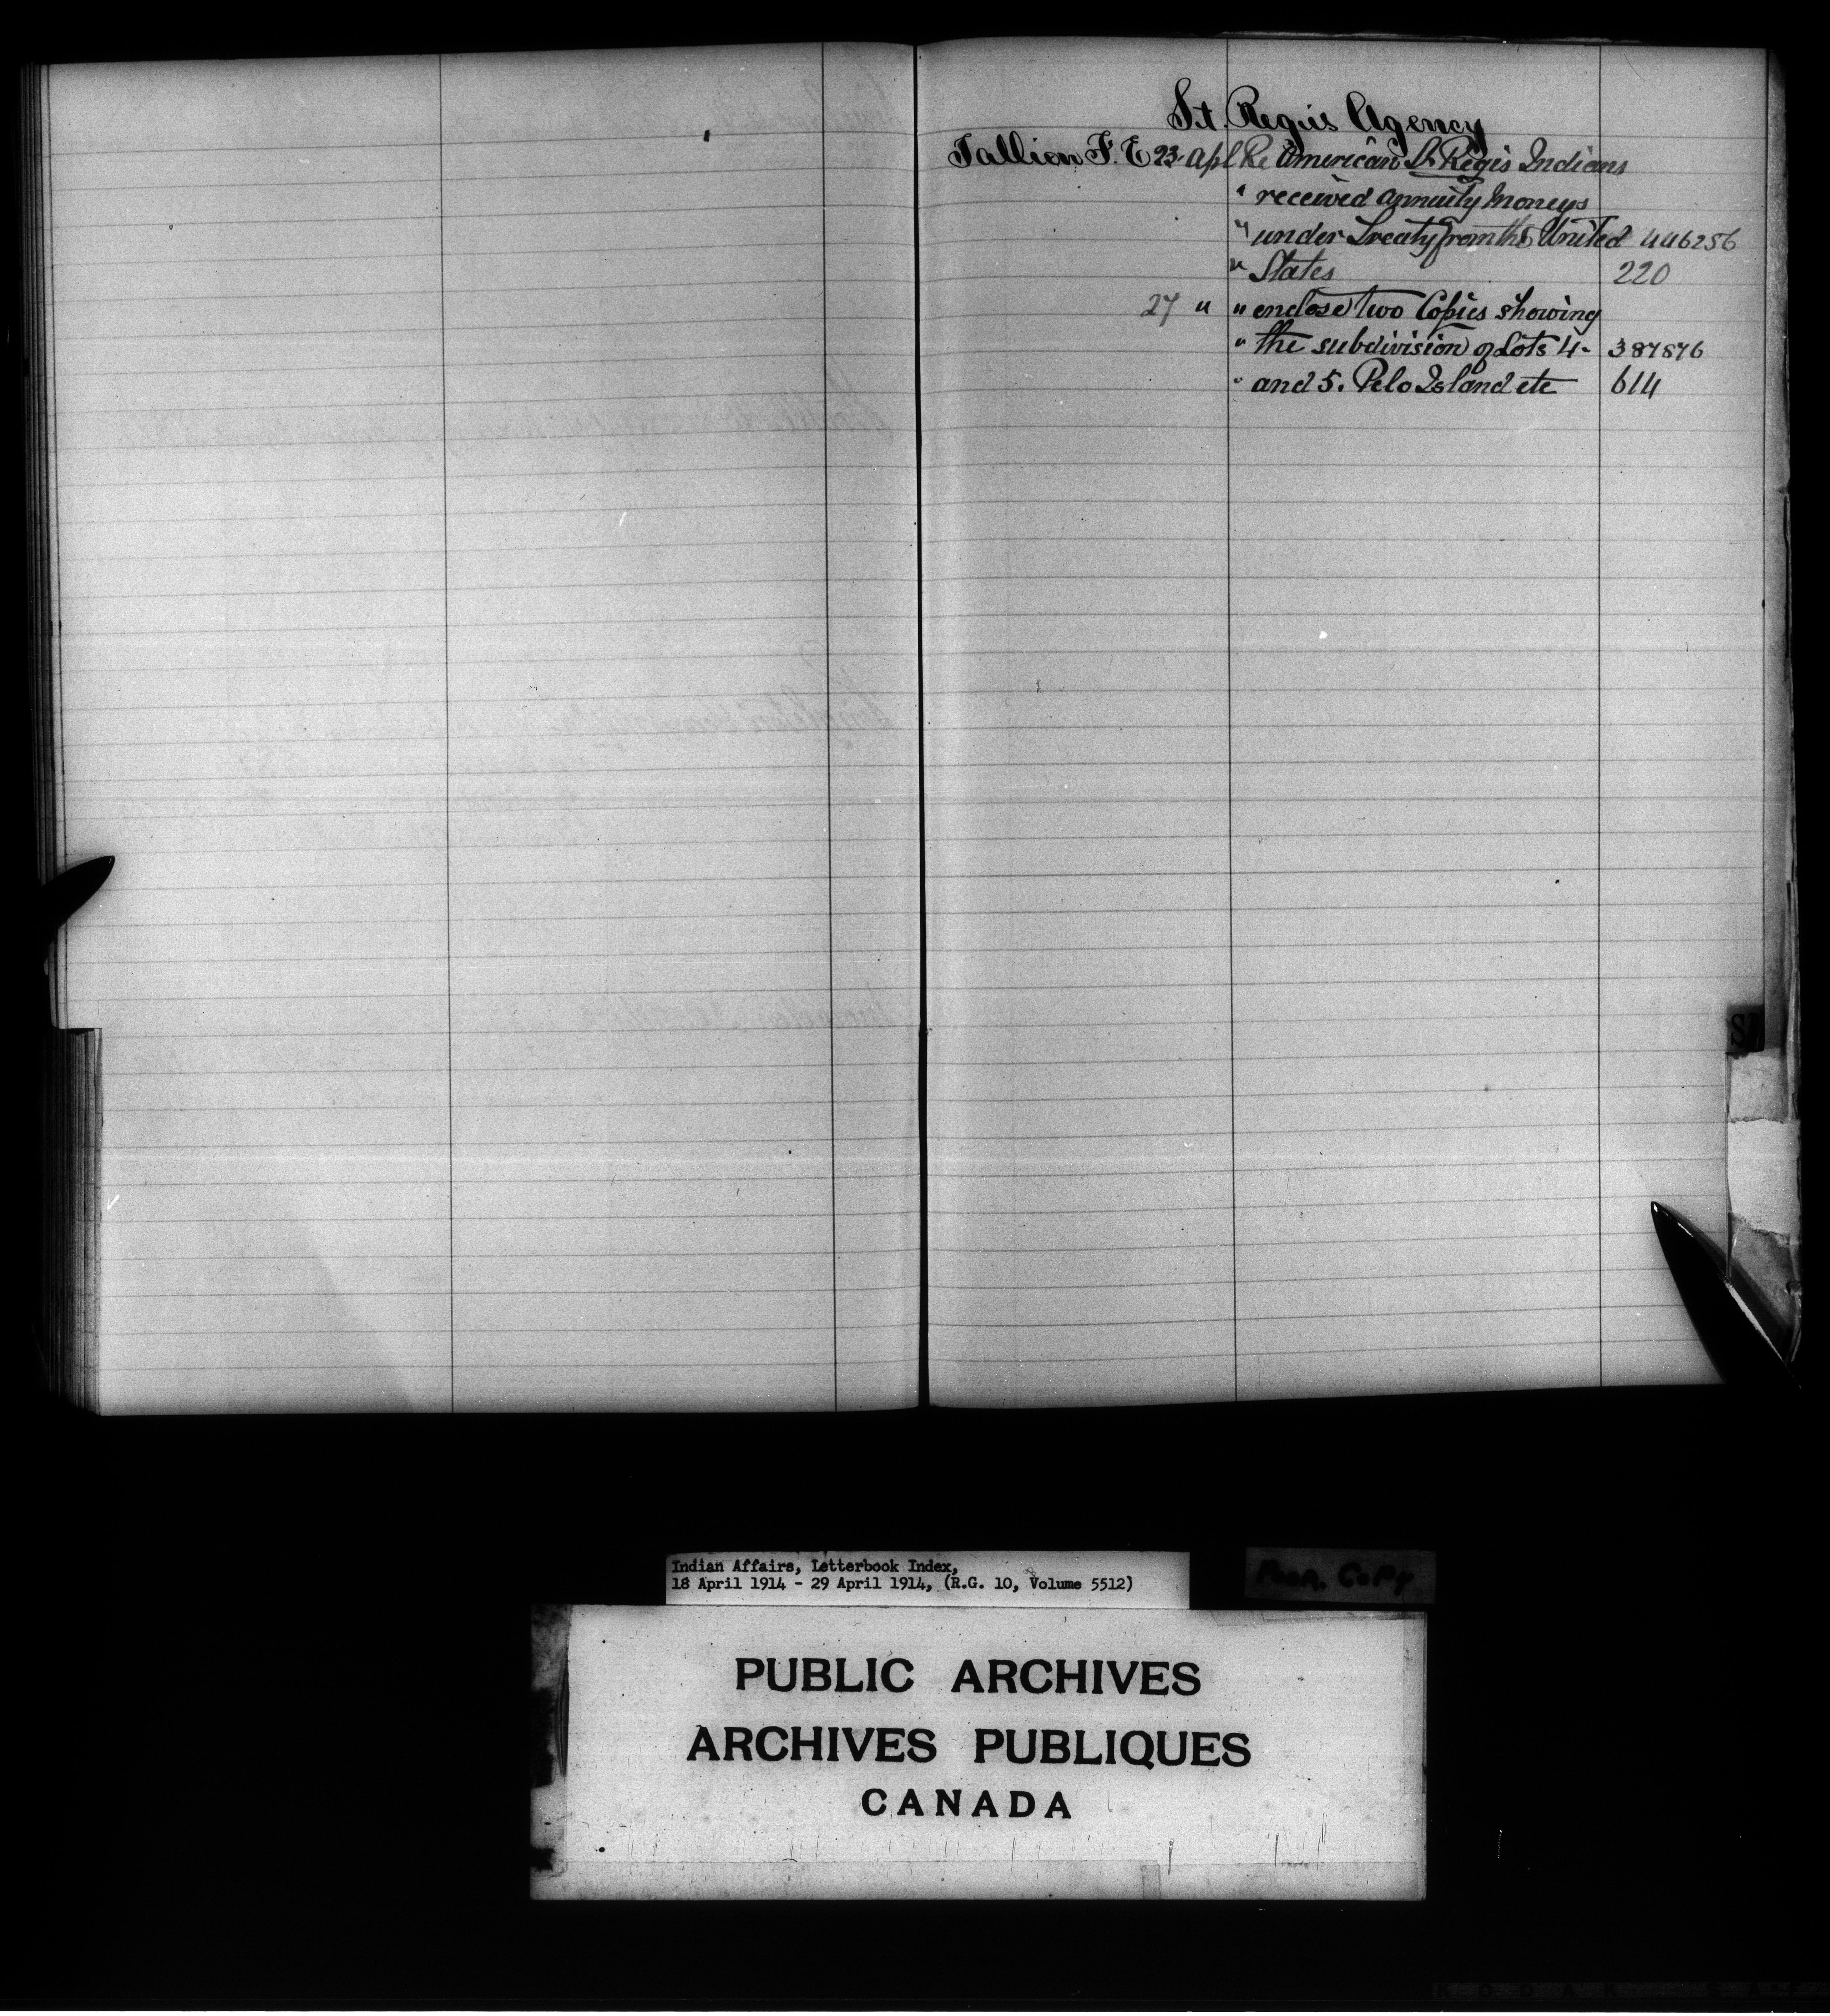 St. Regis Agency
Tallion F. E 23 Apl Re American St Regis Indians
" received annuity moneys
" under Treaty from the United 446256
" States 220
27 " " enclose two Copies showing
" the subdivision of Lots 4- 387876
" and 5. Pelo Island etc 614
S
Indian Affairs, Letterbook Index,
18 April 1914 - 29 April 1914, (R.G. 10, Volume 5512)
Poor. Copy
PUBLIC ARCHIVES
ARCHIVES PUBLIQUES
CANADA